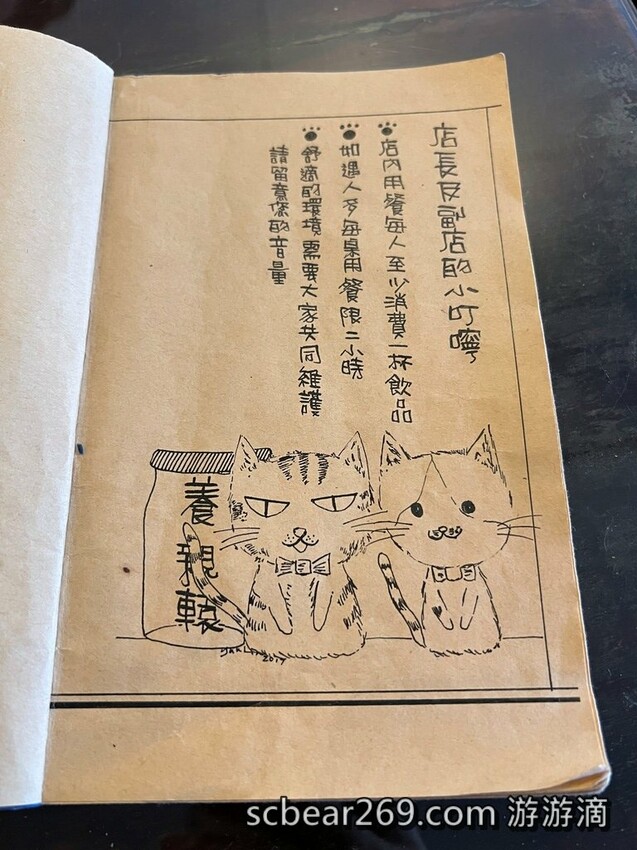 店長及副店的小叮嚀
店內用餐每人至少消費一杯飲品
如遇人多每桌用餐限二小時
舒適的環境需要大家共同維護
請留意您的音量
養親轅
2017
scbear269.com 游游滴